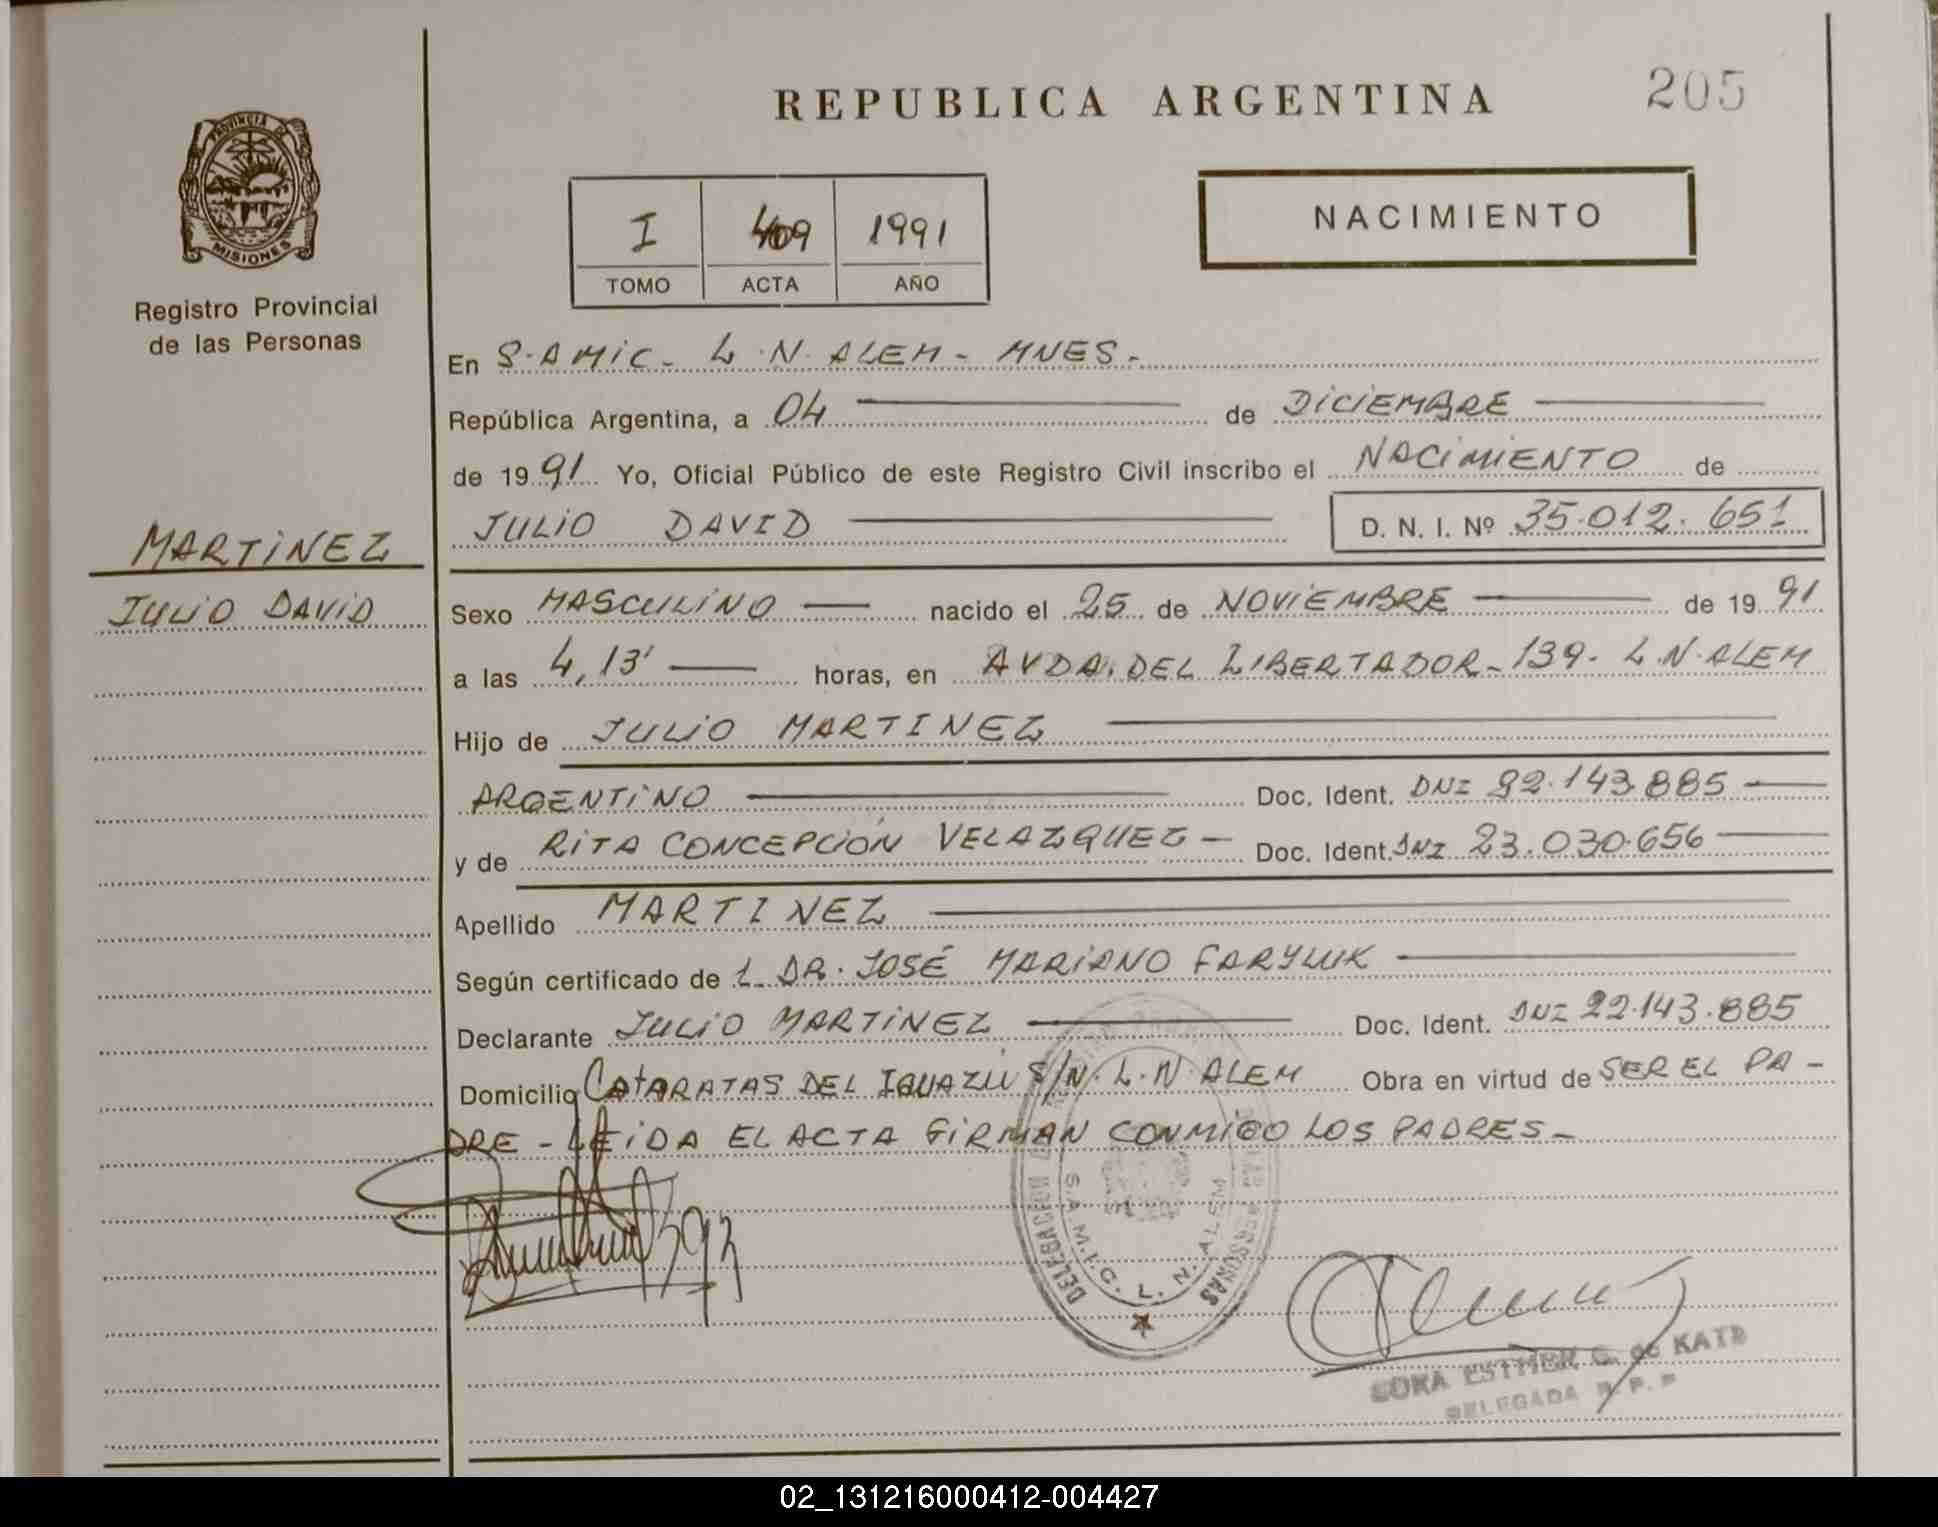 REPUBLICA ARGENTINA
205
PROVINCIA DE
MISIONES
Registro Provincial
de las Personas
I 409 1991
TOMO ACTA AÑO
NACIMIENTO
En S.AMIC- L.N.ALEM- MNES-
República Argentina, a 04 de DICIEMBRE
de 1991 Yo, Oficial Público de este Registro Civil inscribo el NACIMIENTO de
JULIO DAVID D. N. I. Nº 35.012.651
MARTINEZ
JULIO DAVID
Sexo MASCULINO nacido el 25 de NOVIEMBRE de 1991
a las 4,13' horas, en AVDA. DEL LIBERTADOR- 139- L.N.ALEM
Hijo de JULIO MARTINEZ
ARGENTINO Doc. Ident. DNI 22.143.885
y de RITA CONCEPCIÓN VELAZQUEZ- Doc. Ident. DNI 23.030.656
Apellido MARTINEZ
Según certificado de 1- DR. JOSÉ MARIANO FARYLUK
Declarante JULIO MARTINEZ Doc. Ident. DNI 22.143.885
Domicilio CATARATAS DEL IGUAZU S/N. L.N.ALEM Obra en virtud de SER EL PA-
DRE - LEIDA EL ACTA FIRMAN CONMIGO LOS PADRES-
DELEGACION PERSONAS
S.A.M.I.C. L. N. ALEM
ESTHER G. de KATZ
DELEGADA R. P. P
02_131216000412-004427